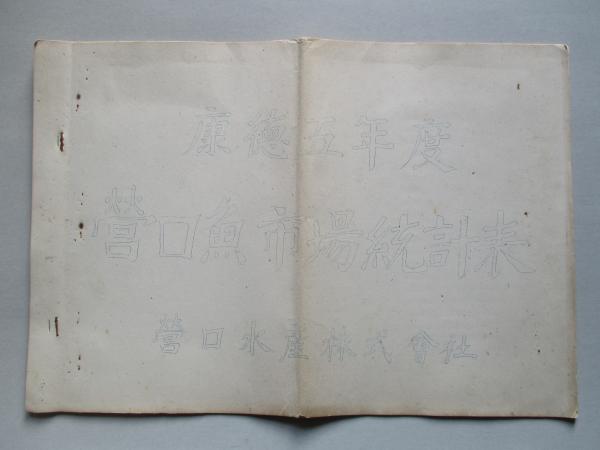 康德五年度
營口魚市場統計表
營口水產株式會社